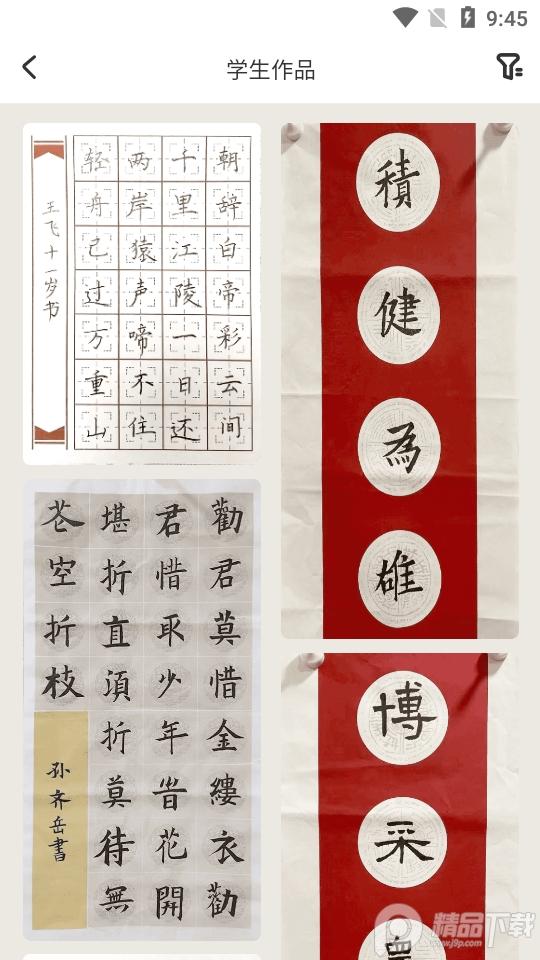 9:45
学生作品
朝辞白帝彩云间
千里江陵一日还
两岸猿声啼不住
轻舟己过万重山
王飞十一岁书
積健為雄
勸君莫惜金縷衣勸
君惜取少年旹花開
堪折直湏折莫待無
苍空折枝
孙齐岳書
博采
精品下载
www.j9p.com